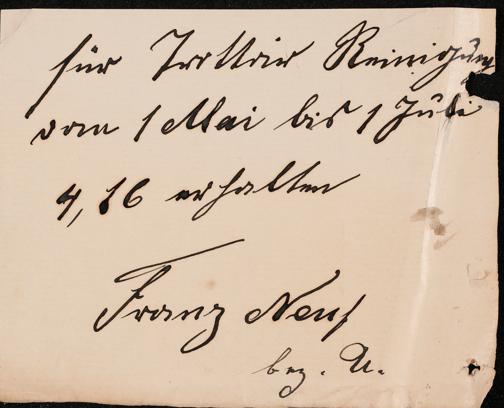 für Trottoir Reinigung
vom 1 Mai bis 1 Juli
4,16 erhalten
Franz Neuß
bez. U.